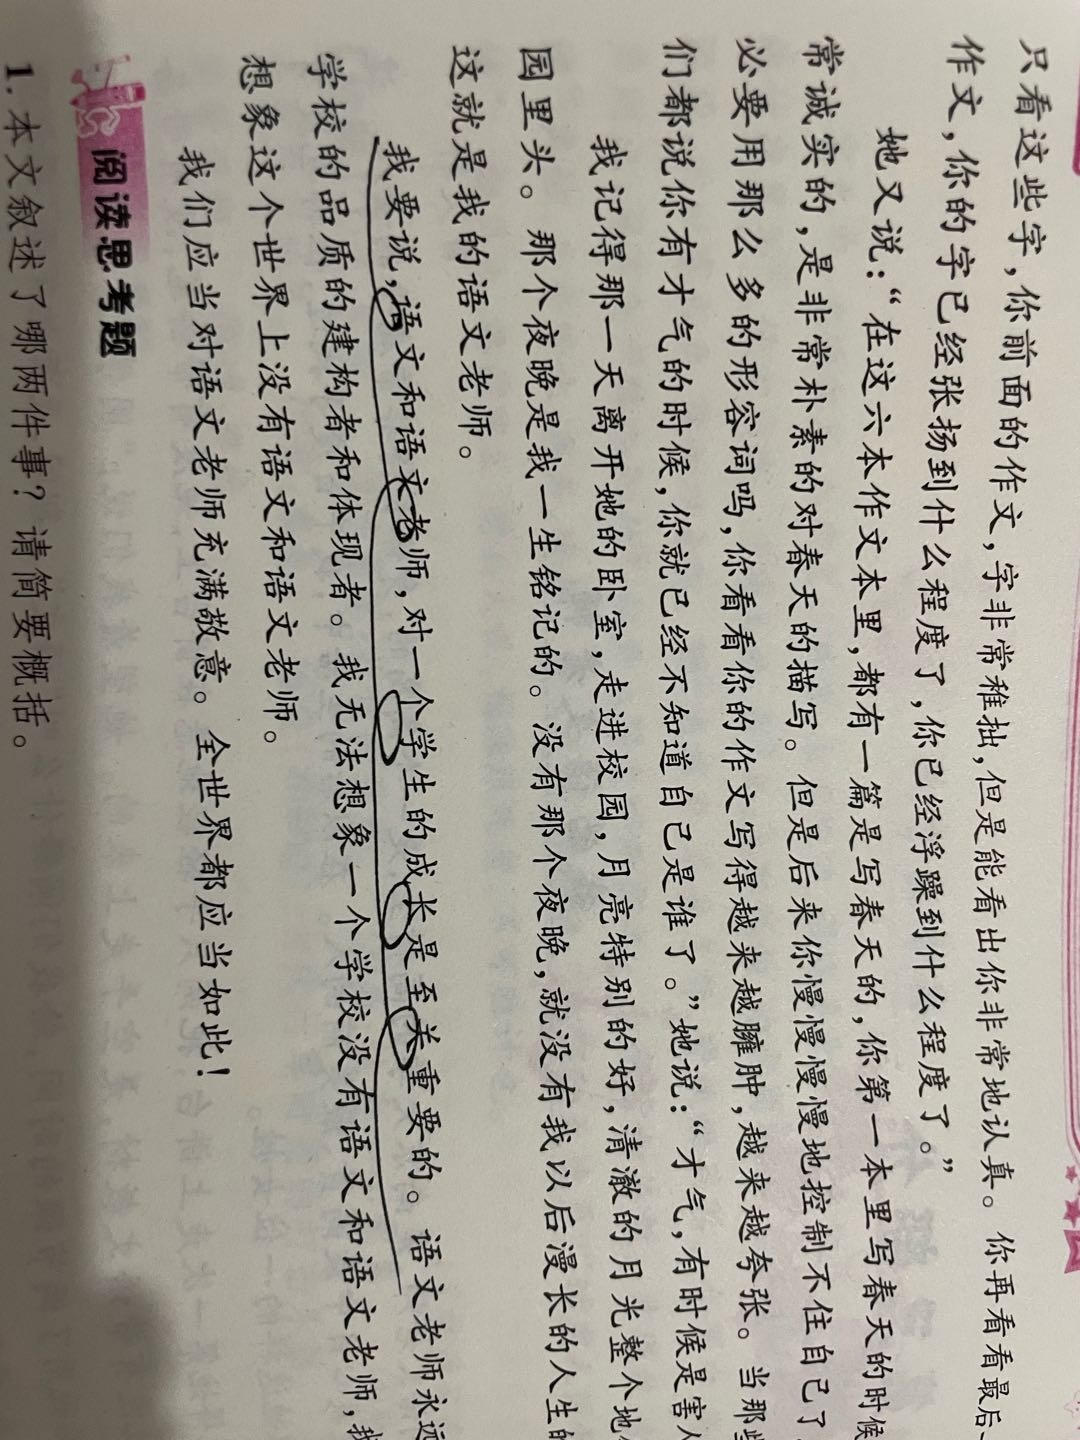 只看这些字，你前面的作文，字非常稚拙，但是能看出你非常地认真。你再看看最后一
作文，你的字已经张扬到什么程度了，你已经浮躁到什么程度了。”
她又说：“在这六本作文本里，都有一篇是写春天的，你第一本里写春天的时候
常诚实的，是非常朴素的对春天的描写。但是后来你慢慢慢慢地控制不住自己了
必要用那么多的形容词吗，你看看你的作文写得越来越臃肿，越来越夸张。当那些
们都说你有才气的时候，你就已经不知道自己是谁了。”她说：“才气，有时候是害人
我记得那一天离开她的卧室，走进校园，月亮特别的好，清澈的月光整个地
园里头。那个夜晚是我一生铭记的。没有那个夜晚，就没有我以后漫长的人生的
这就是我的语文老师。
我要说，语文和语文老师，对一个学生的成长是至关重要的。语文老师永远
学校的品质的建构者和体现者。我无法想象一个学校没有语文和语文老师，我
想象这个世界上没有语文和语文老师。
我们应当对语文老师充满敬意。全世界都应当如此！
阅读思考题
1.本文叙述了哪两件事？请简要概括。